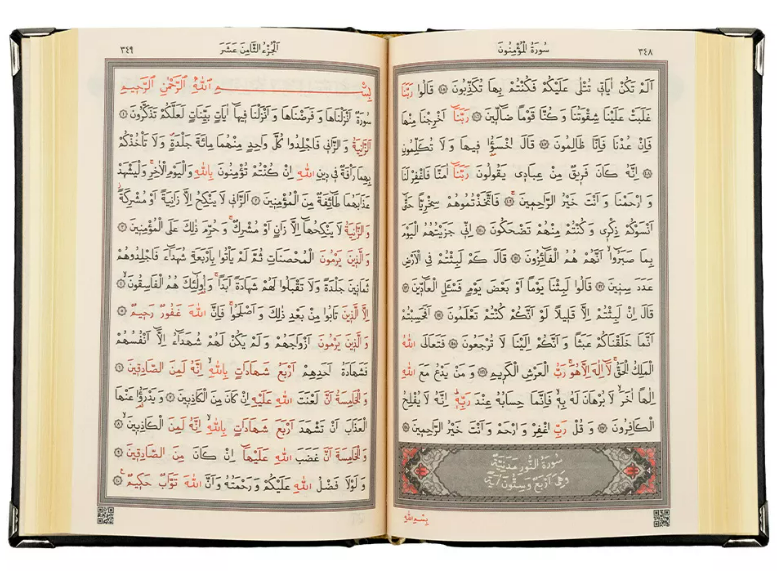 ٣٤٨ سُورَةُ الْمُؤْمِنُونَ
اَلَمْ تَكُنْ اٰيَات۪ي تُتْلٰى عَلَيْكُمْ فَكُنْتُمْ بِهَا تُكَذِّبُونَ ﴿١٠٥﴾ قَالُوا رَبَّنَا
غَلَبَتْ عَلَيْنَا شِقْوَتُنَا وَكُنَّا قَوْمًا ضَٓالّ۪ينَ ﴿١٠٦﴾ رَبَّنَٓا اَخْرِجْنَا مِنْهَا
فَاِنْ عُدْنَا فَاِنَّا ظَالِمُونَ ﴿١٠٧﴾ قَالَ اخْسَؤُ۫ا ف۪يهَا وَلَا تُكَلِّمُونِ
﴿١٠٨﴾ اِنَّهُ كَانَ فَر۪يقٌ مِنْ عِبَاد۪ي يَقُولُونَ رَبَّنَٓا اٰمَنَّا فَاغْفِرْ لَنَا
وَارْحَمْنَا وَاَنْتَ خَيْرُ الرَّاحِم۪ينَ ﴿١٠٩﴾ فَاتَّخَذْتُمُوهُمْ سِخْرِيًّا حَتّٰٓى
اَنْسَوْكُمْ ذِكْر۪ي وَكُنْتُمْ مِنْهُمْ تَضْحَكُونَ ﴿١١٠﴾ اِنّ۪ي جَزَيْتُهُمُ الْيَوْمَ
بِمَا صَبَرُٓوا اَنَّهُمْ هُمُ الْفَٓائِزُونَ ﴿١١١﴾ قَالَ كَمْ لَبِثْتُمْ فِي الْاَرْضِ
عَدَدَ سِن۪ينَ ﴿١١٢﴾ قَالُوا لَبِثْنَا يَوْمًا اَوْ بَعْضَ يَوْمٍ فَسْـَٔلِ الْعَٓادّ۪ينَ ﴿١١٣﴾
قَالَ اِنْ لَبِثْتُمْ اِلَّا قَل۪يلًا لَوْ اَنَّكُمْ كُنْتُمْ تَعْلَمُونَ ﴿١١٤﴾ اَفَحَسِبْتُمْ
اَنَّمَا خَلَقْنَاكُمْ عَبَثًا وَاَنَّكُمْ اِلَيْنَا لَا تُرْجَعُونَ ﴿١١٥﴾ فَتَعَالَى اللّٰهُ
الْمَلِكُ الْحَقُّ لَٓا اِلٰهَ اِلَّا هُوَ رَبُّ الْعَرْشِ الْكَر۪يمِ ﴿١١٦﴾ وَمَنْ يَدْعُ مَعَ اللّٰهِ
اِلٰهًا اٰخَرَ لَا بُرْهَانَ لَهُ بِه۪ فَاِنَّمَا حِسَابُهُ عِنْدَ رَبِّه۪ اِنَّهُ لَا يُفْلِحُ
الْكَافِرُونَ ﴿١١٧﴾ وَقُلْ رَبِّ اغْفِرْ وَارْحَمْ وَاَنْتَ خَيْرُ الرَّاحِم۪ينَ ﴿١١٨﴾
سُورَةُ النُّورِ مَدَنِيَّةٌ
وَهِيَ اَرْبَعٌ وَسِتُّونَ اٰيَةً
بِسْمِ اللّٰهِ
اَلْجُزْءُ الثَّامِنَ عَشَرَ ٣٤٩
بِسْمِ اللّٰهِ الرَّحْمٰنِ الرَّح۪يمِ
سُورَةٌ اَنْزَلْنَاهَا وَفَرَضْنَاهَا وَاَنْزَلْنَا ف۪يهَٓا اٰيَاتٍ بَيِّنَاتٍ لَعَلَّكُمْ تَذَكَّرُونَ ﴿١﴾
اَلزَّانِيَةُ وَالزَّان۪ي فَاجْلِدُوا كُلَّ وَاحِدٍ مِنْهُمَا مِائَةَ جَلْدَةٍ وَلَا تَأْخُذْكُمْ
بِهِمَا رَأْفَةٌ ف۪ي د۪ينِ اللّٰهِ اِنْ كُنْتُمْ تُؤْمِنُونَ بِاللّٰهِ وَالْيَوْمِ الْاٰخِرِ وَلْيَشْهَدْ
عَذَابَهُمَا طَٓائِفَةٌ مِنَ الْمُؤْمِن۪ينَ ﴿٢﴾ اَلزَّان۪ي لَا يَنْكِحُ اِلَّا زَانِيَةً اَوْ مُشْرِكَةً
وَالزَّانِيَةُ لَا يَنْكِحُهَٓا اِلَّا زَانٍ اَوْ مُشْرِكٌ وَحُرِّمَ ذٰلِكَ عَلَى الْمُؤْمِن۪ينَ ﴿٣﴾
وَالَّذ۪ينَ يَرْمُونَ الْمُحْصَنَاتِ ثُمَّ لَمْ يَأْتُوا بِاَرْبَعَةِ شُهَدَٓاءَ فَاجْلِدُوهُمْ
ثَمَان۪ينَ جَلْدَةً وَلَا تَقْبَلُوا لَهُمْ شَهَادَةً اَبَدًا وَاُو۬لٰٓئِكَ هُمُ الْفَاسِقُونَ ﴿٤﴾
اِلَّا الَّذ۪ينَ تَابُوا مِنْ بَعْدِ ذٰلِكَ وَاَصْلَحُوا فَاِنَّ اللّٰهَ غَفُورٌ رَح۪يمٌ ﴿٥﴾
وَالَّذ۪ينَ يَرْمُونَ اَزْوَاجَهُمْ وَلَمْ يَكُنْ لَهُمْ شُهَدَٓاءُ اِلَّٓا اَنْفُسُهُمْ
فَشَهَادَةُ اَحَدِهِمْ اَرْبَعُ شَهَادَاتٍ بِاللّٰهِ اِنَّهُ لَمِنَ الصَّادِق۪ينَ ﴿٦﴾
وَالْخَامِسَةُ اَنَّ لَعْنَتَ اللّٰهِ عَلَيْهِ اِنْ كَانَ مِنَ الْكَاذِب۪ينَ ﴿٧﴾ وَيَدْرَؤُ۬ا عَنْهَا
الْعَذَابَ اَنْ تَشْهَدَ اَرْبَعَ شَهَادَاتٍ بِاللّٰهِ اِنَّهُ لَمِنَ الْكَاذِب۪ينَ ﴿٨﴾
وَالْخَامِسَةَ اَنَّ غَضَبَ اللّٰهِ عَلَيْهَٓا اِنْ كَانَ مِنَ الصَّادِق۪ينَ ﴿٩﴾
وَلَوْلَا فَضْلُ اللّٰهِ عَلَيْكُمْ وَرَحْمَتُهُ وَاَنَّ اللّٰهَ تَوَّابٌ حَك۪يمٌ ﴿١٠﴾